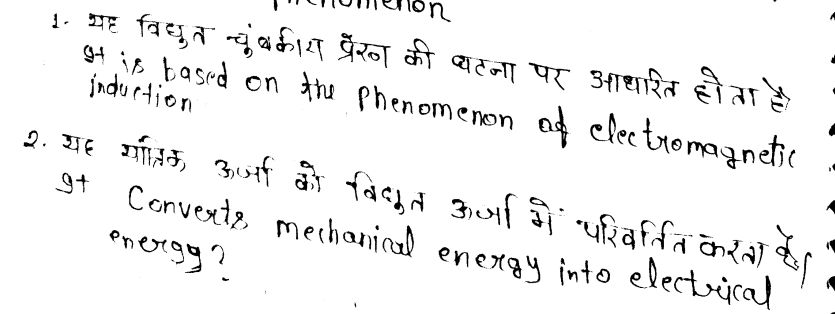 Phenomenon
1. यह विद्युत चुंबकीय प्रेरन की घटना पर आधारित होता है
It is based on the phenomenon of electromagnetic
induction
2. यह यांत्रिक ऊर्जा को विद्युत ऊर्जा में परिवर्तित करता है।
It Converts mechanical energy into electrical
energy?